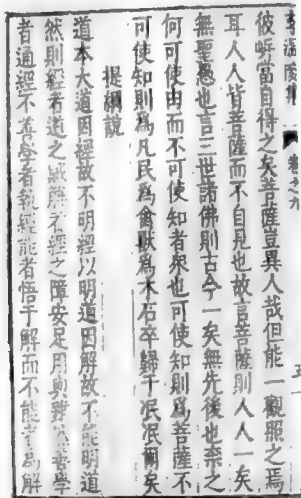 李溫陵集　卷之九
彼呼當自得之矣菩薩豈異人哉但能一觀照之焉
耳人人皆菩薩而不自見也故言菩薩則人人一矣
無聖愚也言三世諸佛則古今一矣無先後也奈之
何可使由而不可使知者衆也可使知則為菩薩不
可使知則為凡民為禽獸為木石卒歸于泯泯爾矣
提綱說
道本大道因經故不明經以明道因解故不能明道
然則經者道之賊解者經之障安足用與雖然善學
者通經不善學者執經能者悟于解而不能者為解